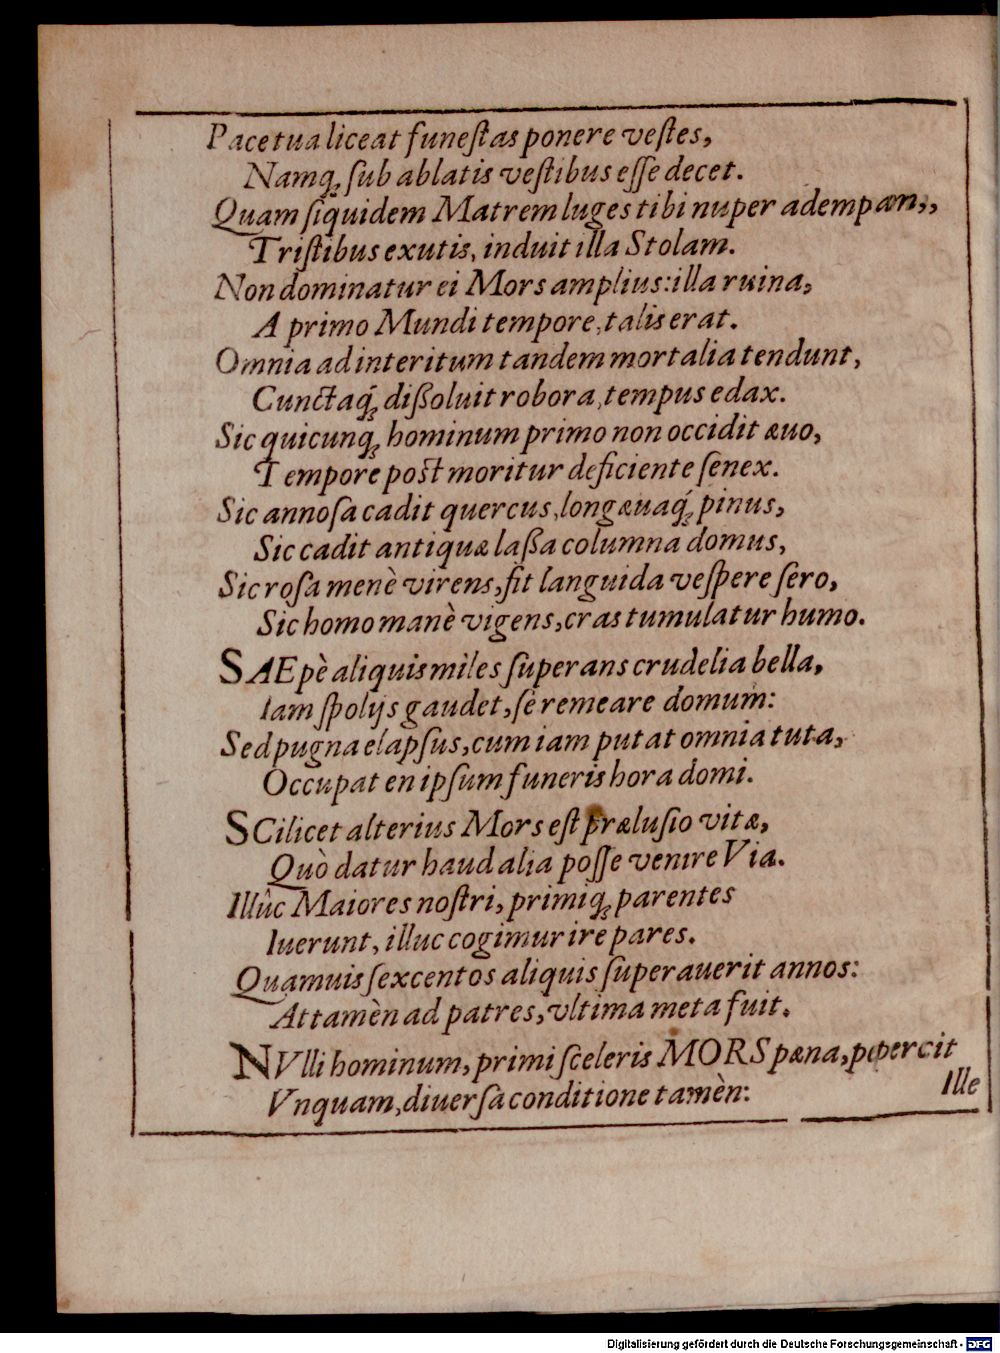 Pace tua liceat funeſtas ponere veſtes,
Namq; ſub ablatis veſtibus eſſe decet.
Quam ſiquidem Matrem luges tibi nuper adempam,,
Triſtibus exutis, induit illa Stolam.
Non dominatur ei Mors amplius: illa ruina,
A primo Mundi tempore, talis erat.
Omnia ad interitum tandem mortalia tendunt,
Cunctaq́; dißoluit robora, tempus edax.
Sic quicunq; hominum primo non occidit æuo,
Tempore poſt moritur deficiente ſenex.
Sic annoſa cadit quercus, longæuaq́; pinus,
Sic cadit antiquæ laßa columna domus,
Sic roſa menè virens, fit languida veſpere ſero,
Sic homo manè vigens, cras tumulatur humo.
SAEpè aliquis miles ſuperans crudelia bella,
Iam ſpolijs gaudet, ſe remeare domum:
Sed pugna elapſus, cum iam putat omnia tuta,
Occupat en ipſum funeris hora domi.
SCilicet alterius Mors eſt præluſio vitæ,
Quò datur haud alia poſſe venire Via.
Illûc Maiores noſtri, primiq; parentes
Iuerunt, illuc cogimur ire pares.
Quamuis ſexcentos aliquis ſuperauerit annos:
Attamèn ad patres, vltima meta fuit.
NVlli hominum, primi ſceleris MORS pæna, pepercit
Vnquam, diuerſa conditione tamèn:
Ille
Digitalisierung gefördert durch die Deutsche Forschungsgemeinschaft - DFG